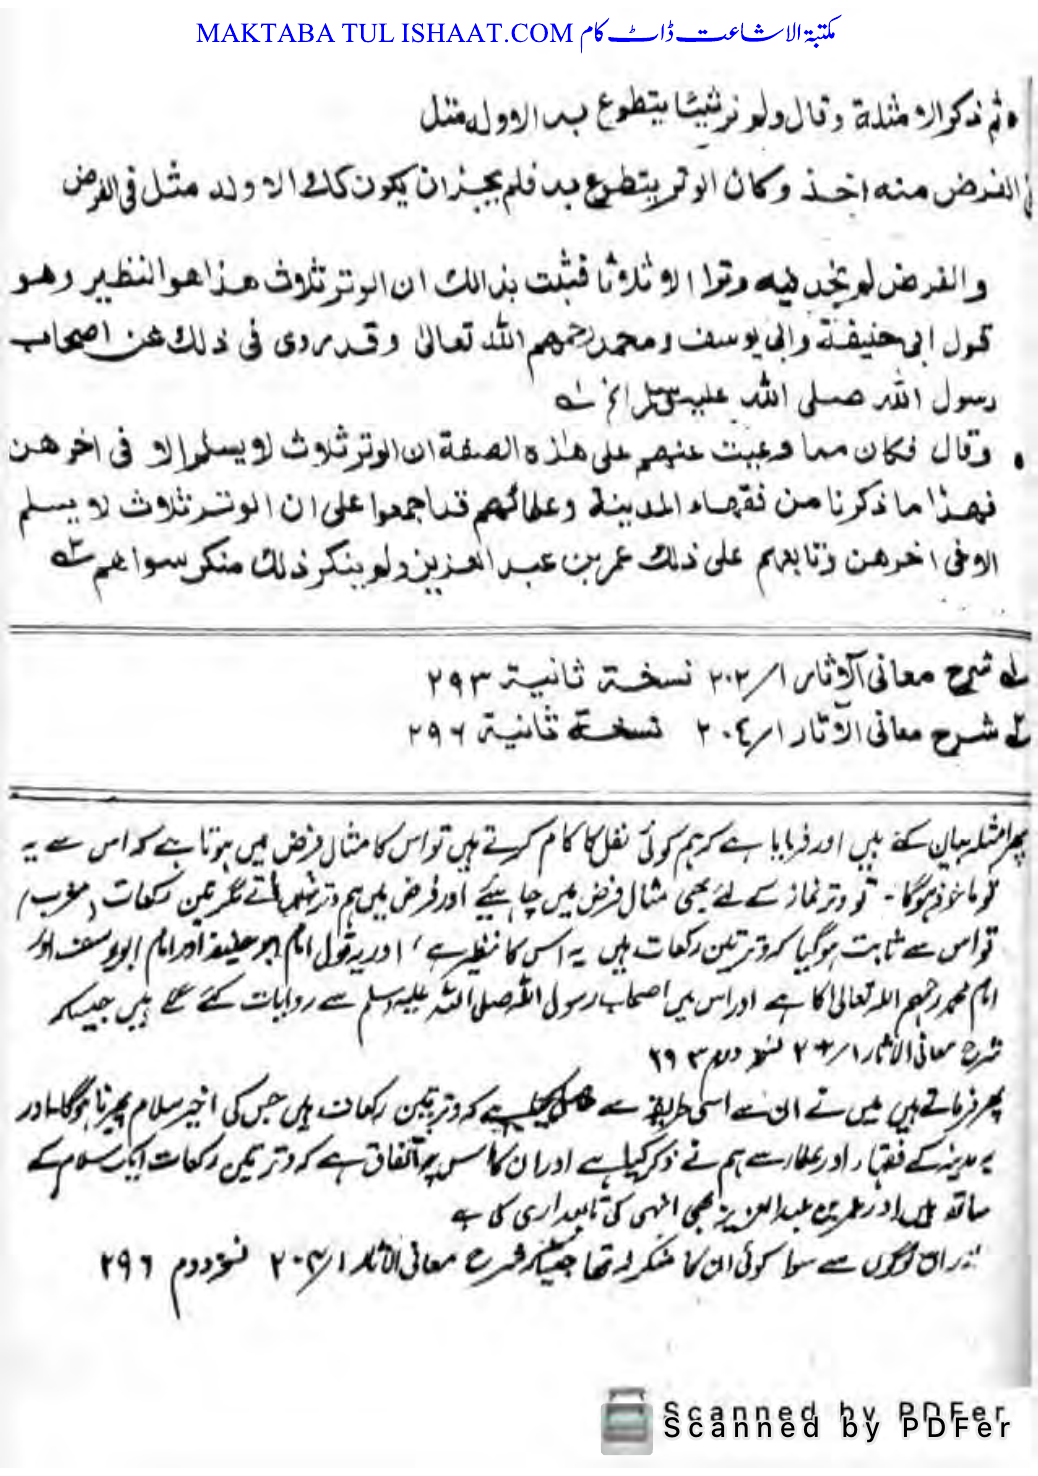 MAKTABA TUL ISHAAT.COM مکتبۃ الاشاعت ڈاٹ کام
ثم ذكر الامثلة وقال ولم نر شيئا يتطوع به الا وله مثل
فی الفرض منه اخذ وكان الوتر يتطوع به فلم يجز ان يكون كذلك الا وله مثل فی الفرض
والفرض لم نجد فيه وترا الا ثلاثا فثبت بذالك ان الوتر ثلاث هذا هو النظير وهو
قول ابی حنيفة وابی يوسف ومحمد رحمهم الله تعالیٰ وقد روی فی ذلك عن اصحاب
رسول الله صلی الله عليه وسلم الخ ۱ے
• وقال فكان مما وعيت عنهم علی هٰذه الصفة ان الوتر ثلاث لا يسلم الا فی اخرهن
فهذا ما ذكرنا من فقهاء المدينة وعلمائهم قد اجمعوا علی ان الوتر ثلاث لا يسلم
الا فی اخرهن وتابعهم علی ذلك عمر بن عبد العزيز ولم ينكر ذلك منكر سواهم ۲ے
۱ے شرح معانی الآثار ۱/۲۰۲ نسخة ثانية ۲۹۳
۲ے شرح معانی الآثار ۱/۲۰٤ نسخة ثانية ۲۹۶
پھر امثلہ بیان کئے ہیں اور فرمایا ہے کہ ہم کوئی نفل کا کام کرتے ہیں تو اس کا مثال فرض میں ہوتا ہے کہ اس سے یہ
کو ماخوذ ہوگا۔ تو وتر نماز کے لئے بھی مثال فرض میں چاہیئے اور فرض میں ہم وتر نہیں پاتے مگر تین رکعات (مغرب)
تو اس سے ثابت ہوگیا کہ وتر تین رکعات ہیں یہ اس کا نظیر ہے، اور یہ قول امام ابو حنیفہ اور امام ابو یوسف اور
امام محمد رحمہم اللہ تعالیٰ کا ہے اور اس میں اصحاب رسول اللہ صلی اللہ علیہ وسلم سے روایات کئے گئے ہیں جیسا کہ
شرح معانی الآثار ۱/۲۰۲ نسخہ دوم ۲۹۳
پھر فرماتے ہیں میں نے ان سے اسی طریقہ سے کیا ہے کہ وتر تین رکعات ہیں جس کی اخیر سلام پھیرنا ہوگا۔ اور
یہ مدینہ کے فقہاء اور علماء سے ہم نے ذکر کیا ہے اور ان کا اس پر اتفاق ہے کہ وتر تین رکعات ایک سلام کے
ساتھ ہیں اور عمر بن عبد العزیز بھی انہی کی تابعداری کی ہے
اور ان لوگوں سے سوا کوئی ان کا منکر نہ تھا شرح معانی الآثار ۱/۲۰۴ نسخہ دوم ۲۹۶
Scanned by PDFer
Scanned by PDFer